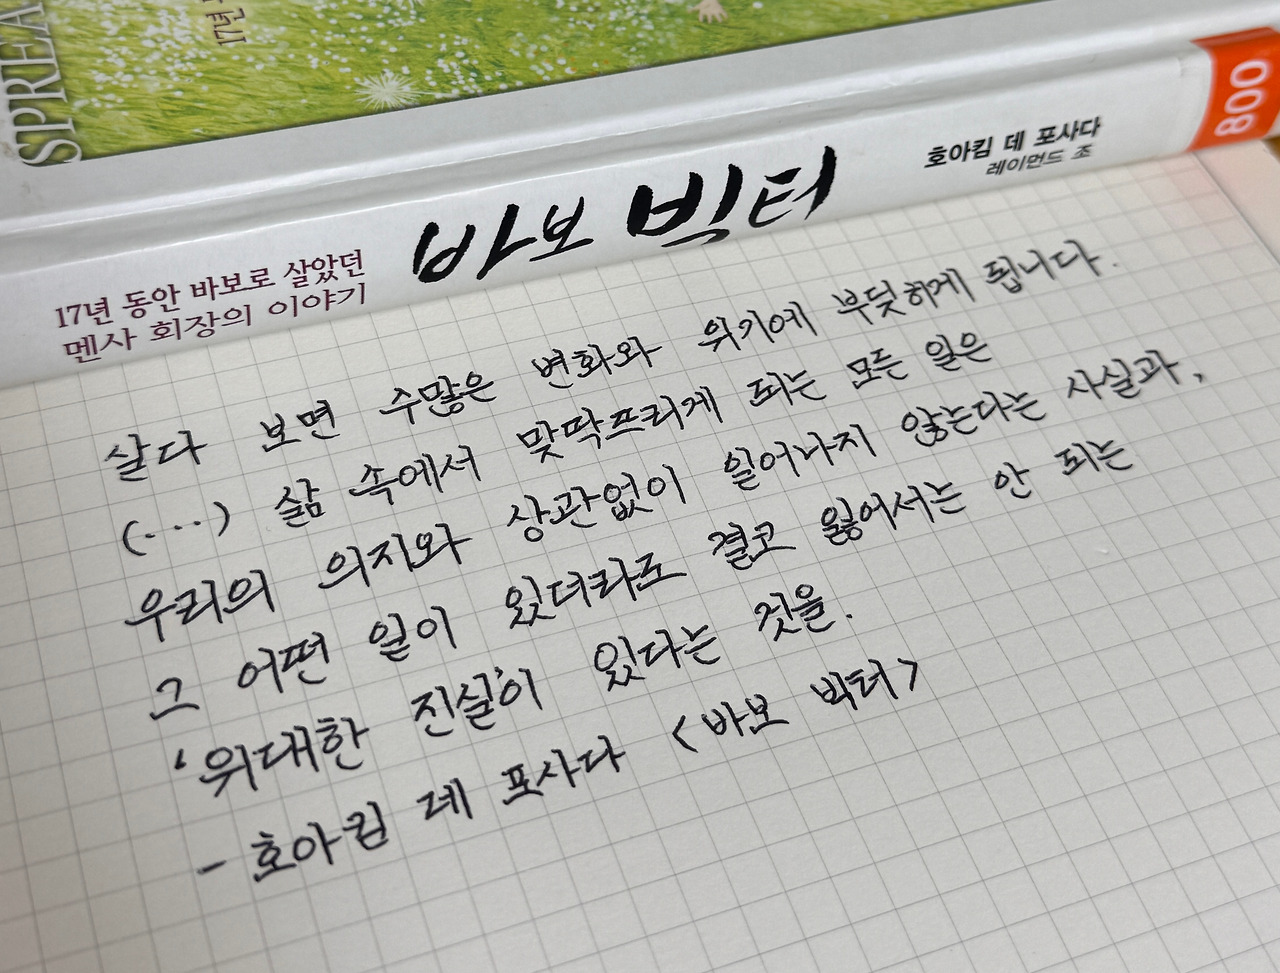 SPREA
17년
800
호아킴 데 포사다
레이먼드 조
바보 빅터
17년 동안 바보로 살았던
멘사 회장의 이야기
살다 보면 수많은 변화와 위기에 부딪하게 됩니다.
(···) 삶 속에서 맞딱프리게 되는 모든 일은
우리의 의지와 상관없이 일어나지 않는다는 사실과,
그 어떤 일이 있더라도 결코 잃어서는 안 되는
'위대한 진실'이 있다는 것을.
- 호아킴 데 포사다 <바보 빅터>